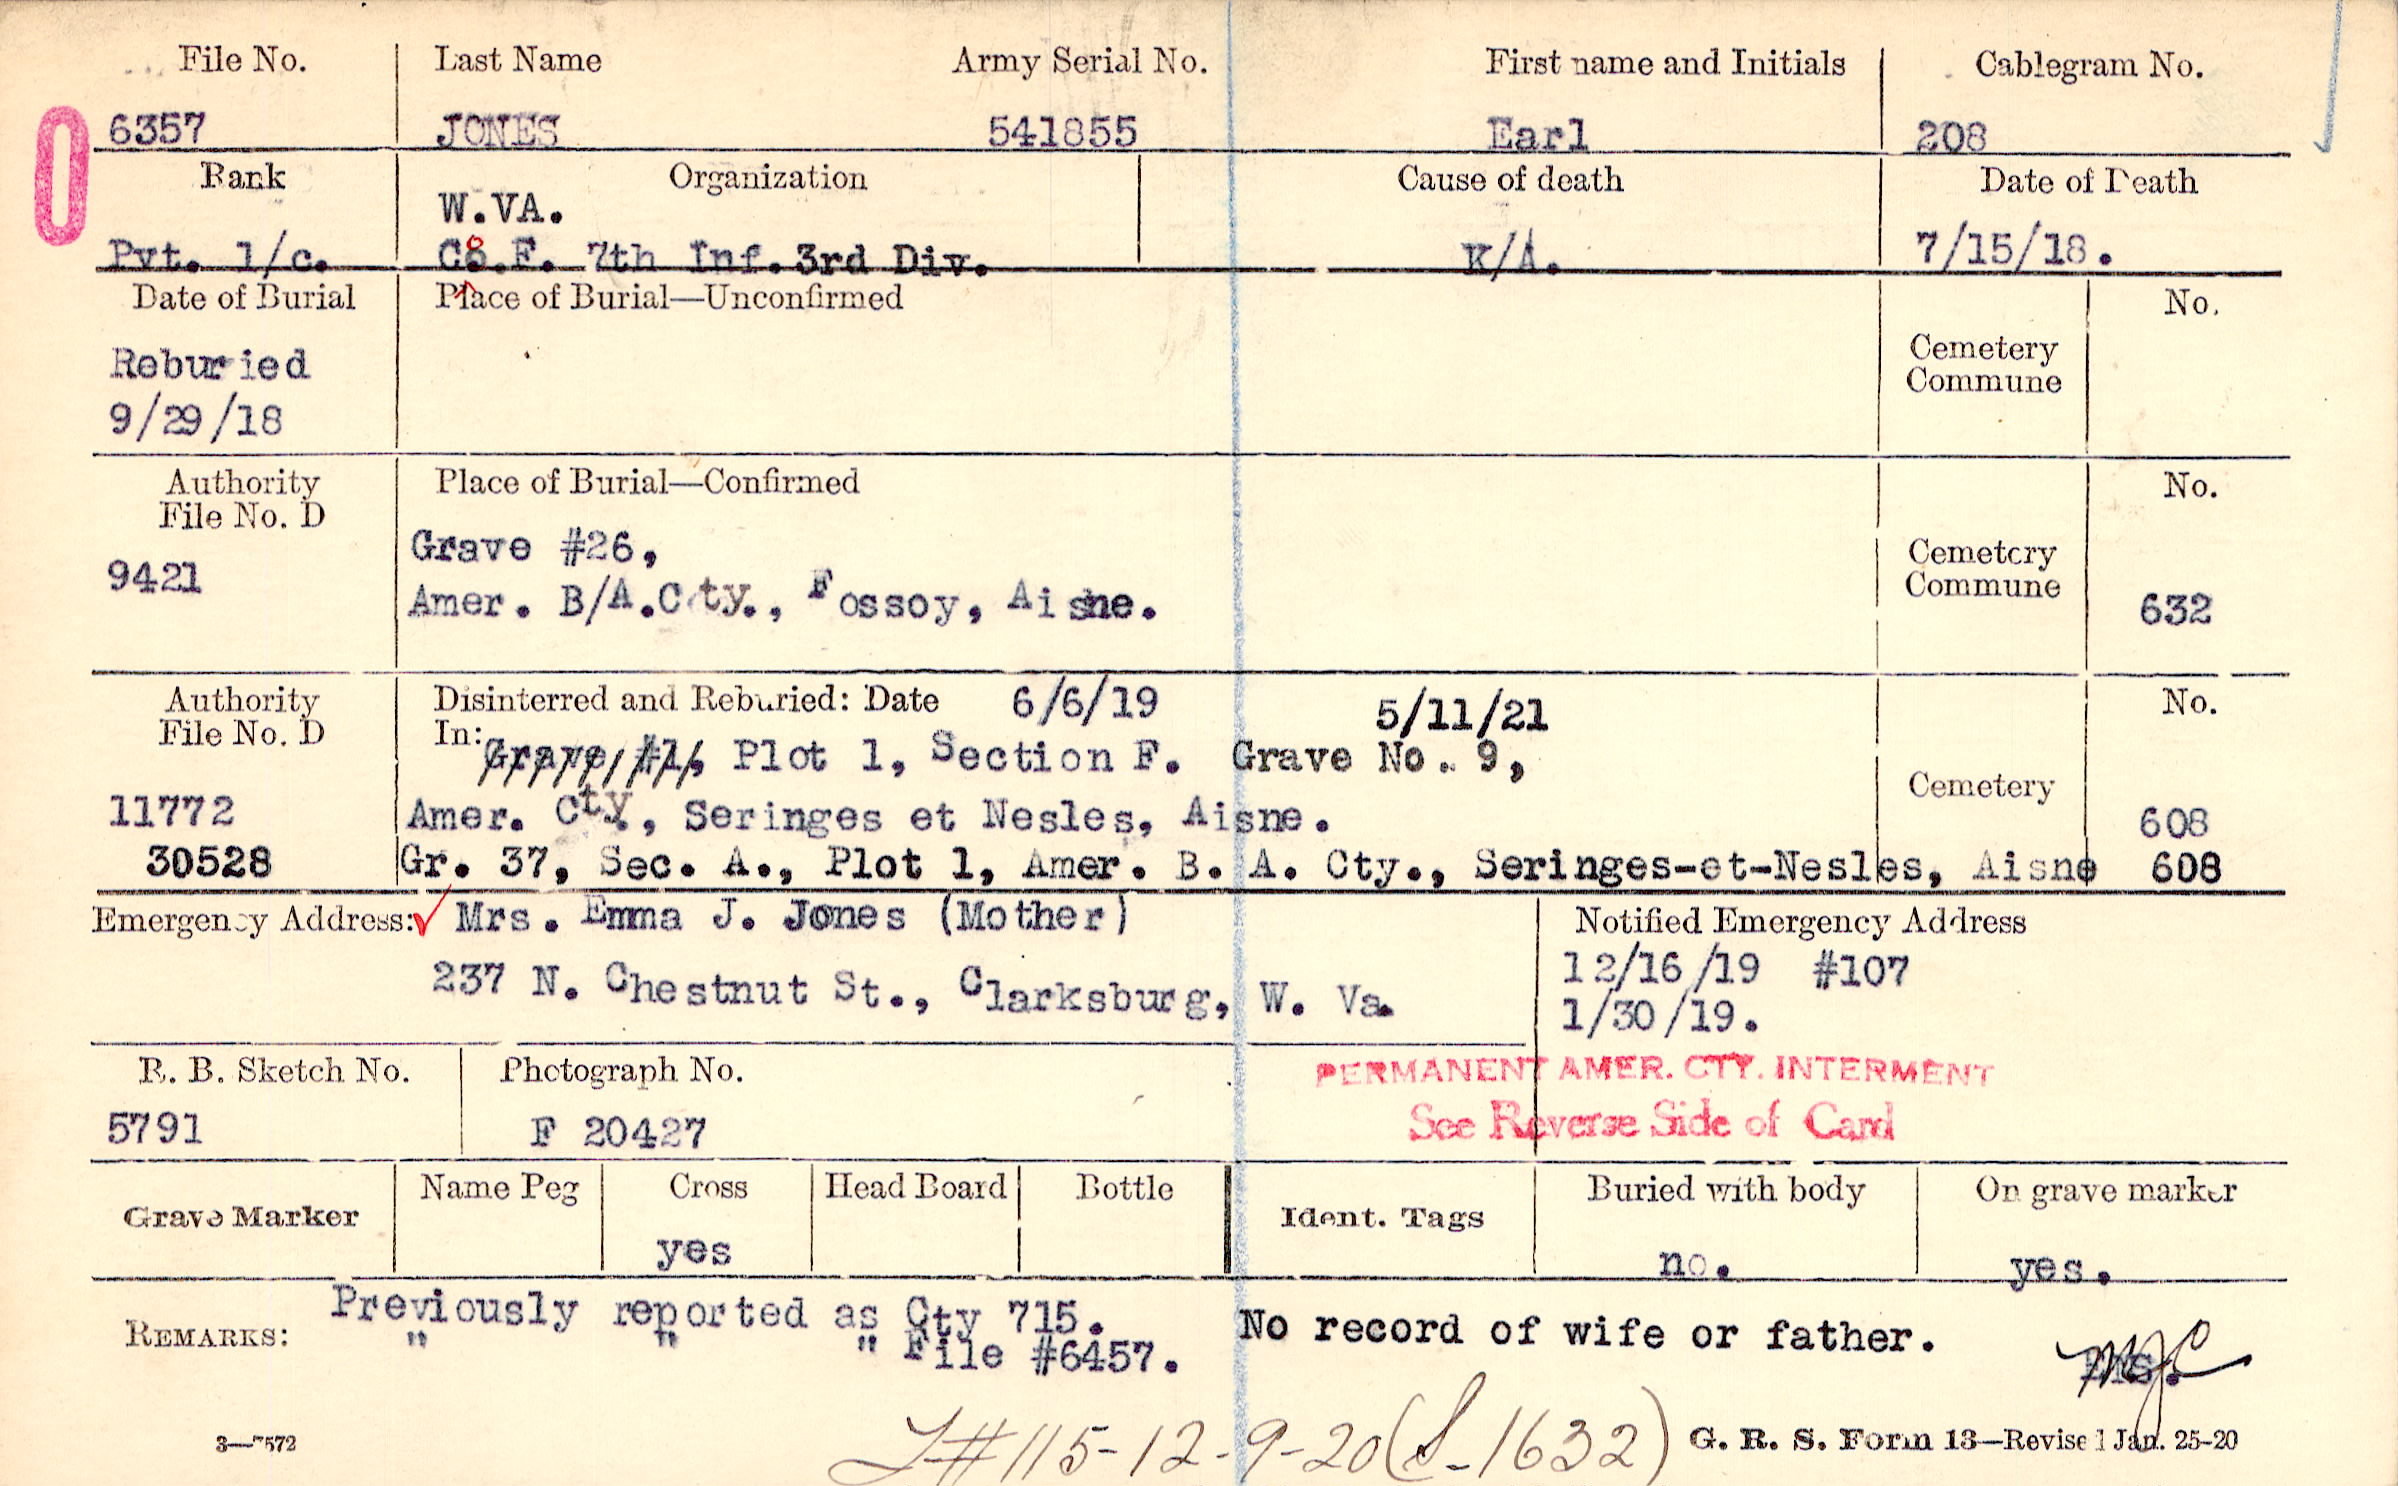 File No. Last Name Army Serial No. First name and Initials Cablegram No.
6357 JONES 541855 Earl 208
Rank Organization Cause of death Date of Death
W.VA.
Pvt. 1/c. Co.F. 7th Inf. 3rd Div. K/A. 7/15/18.
Date of Burial Place of Burial—Unconfirmed No.
Reburied
9/29/18
Cemetery
Commune
Authority
File No. D
Place of Burial—Confirmed No.
9421
Grave #26,
Amer. B/A.Cty., Fossoy, Aisne.
Cemetery
Commune
632
Authority
File No. D
Disinterred and Reburied: Date 6/6/19 5/11/21 No.
In: Grave #1, Plot 1, Section F. Grave No. 9,
11772 Amer. Cty., Seringes et Nesles, Aisne. Cemetery 608
30528 Gr. 37, Sec. A., Plot 1, Amer. B. A. Cty., Seringes-et-Nesles, Aisne 608
Emergency Address: Mrs. Emma J. Jones (Mother)
237 N. Chestnut St., Clarksburg, W. Va.
Notified Emergency Address
12/16/19 #107
1/30/19.
R. B. Sketch No. Photograph No.
5791 F 20427
PERMANENT AMER. CTY. INTERMENT
See Reverse Side of Card
Grave Marker Name Peg Cross Head Board Bottle Ident. Tags Buried with body On grave marker
yes no. yes.
REMARKS: Previously reported as Cty 715. No record of wife or father.
" " " File #6457.
L#115-12-9-20(S-1632)
3—7572 G. R. S. Form 13—Revised Jan. 25-20